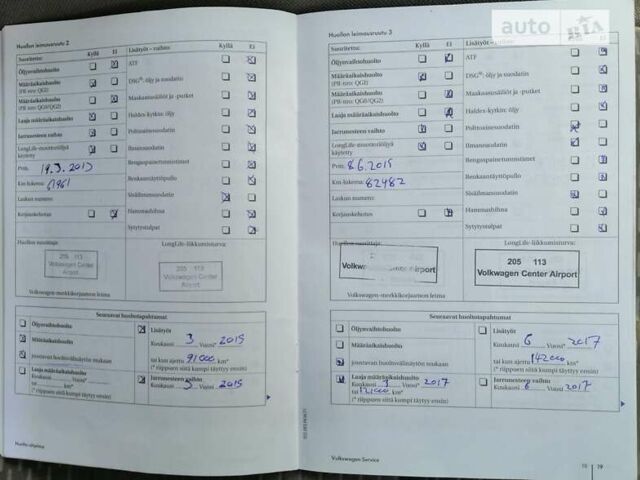 Huollon leimausruutu 2
Suoritettu: Kyllä Ei
Öljynvaihtohuolto
Määräaikaishuolto
(PR-nro: QG1)
Määräaikaishuolto
(PR-nro: QG0/QG2)
Laaja määräaikaishuolto
Jarrunesteen vaihto
LongLife-moottoriöljyä
käytetty
Pvm. 19.3.2013
Km-lukema: 61961
Laskun numero:
Korjauskehotus
Lisätyöt – vaihto: Kyllä Ei
ATF
DSG®: öljy ja suodatin
Maakaasusäiliöt ja -putket
Haldex-kytkin: öljy
Polttoainesuodatin
Ilmansuodatin
Hengenpelastustunnistimet
Renkaantäyttöpullo
Sisäilmansuodatin
Hammashihna
Sytytystulpat
Huollon suorittaja:
LongLife-liikkumisturva:
205 113
Volkswagen Center
Airport
205 113
Volkswagen Center
Airport
Volkswagen-merkkikorjaamon leima
Seuraavat huoltotapahtumat
Öljynvaihtohuolto
Määräaikaishuolto
joustavan huoltovälinäytön mukaan
Laaja määräaikaishuolto
Kuukausi Vuosi*
tai km*
(* riippuen siitä kumpi täyttyy ensin)
Lisätyöt
Kuukausi 3 Vuosi* 2015
tai kun ajettu 91000 km*
(* riippuen siitä kumpi täyttyy ensin)
Jarrunesteen vaihto
Kuukausi 3 Vuosi 2015
Huolto-ohjelma
Huollon leimausruutu 3
Suoritettu: Kyllä Ei
Öljynvaihtohuolto
Määräaikaishuolto
(PR-nro: QG1)
Määräaikaishuolto
(PR-nro: QG0/QG2)
Laaja määräaikaishuolto
Jarrunesteen vaihto
LongLife-moottoriöljyä
käytetty
Pvm. 8.6.2015
Km-lukema: 82482
Laskun numero:
Korjauskehotus
Lisätyöt – vaihto:
ATF
DSG®: öljy ja suodatin
Maakaasusäiliöt ja -putket
Haldex-kytkin: öljy
Polttoainesuodatin
Ilmansuodatin
Renkaantäyttöpullo
Sisäilmansuodatin
Hammashihna
Sytytystulpat
Huollon suorittaja:
LongLife-liikkumisturva:
Volkswagen Center Airport
205 113
Volkswagen Center Airport
Volkswagen-merkkikorjaamon leima
Seuraavat huoltotapahtumat
Öljynvaihtohuolto
Määräaikaishuolto
joustavan huoltovälinäytön mukaan
Laaja määräaikaishuolto
Kuukausi Vuosi* 2017
tai km*
(* riippuen siitä kumpi täyttyy ensin)
Lisätyöt
Kuukausi 6 Vuosi* 2017
tai kun ajettu 142000 km*
(* riippuen siitä kumpi täyttyy ensin)
Jarrunesteen vaihto
Kuukausi 6 Vuosi 2017
Volkswagen Service
19
auto RIA